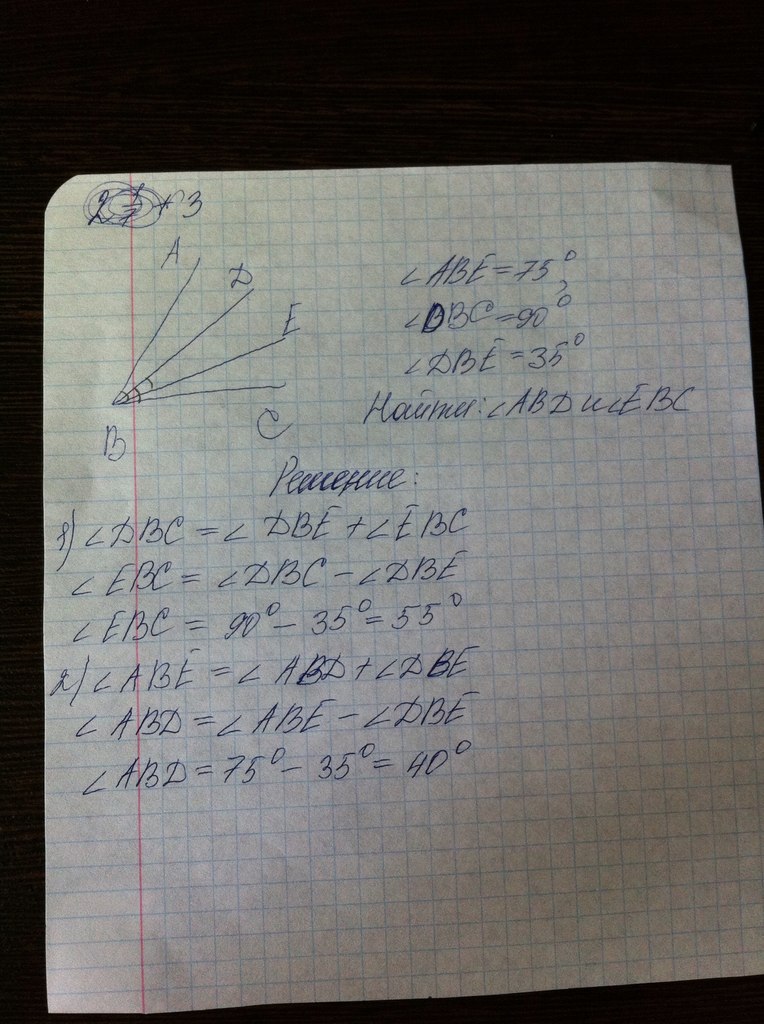 №3
A
D
E
C
B
∠ABE = 75°
∠DBC = 90°
∠DBE = 35°
Найти: ∠ABD и ∠EBC
Решение:
1) ∠DBC = ∠DBE + ∠EBC
∠EBC = ∠DBC − ∠DBE
∠EBC = 90° − 35° = 55°
2) ∠ABE = ∠ABD + ∠DBE
∠ABD = ∠ABE − ∠DBE
∠ABD = 75° − 35° = 40°